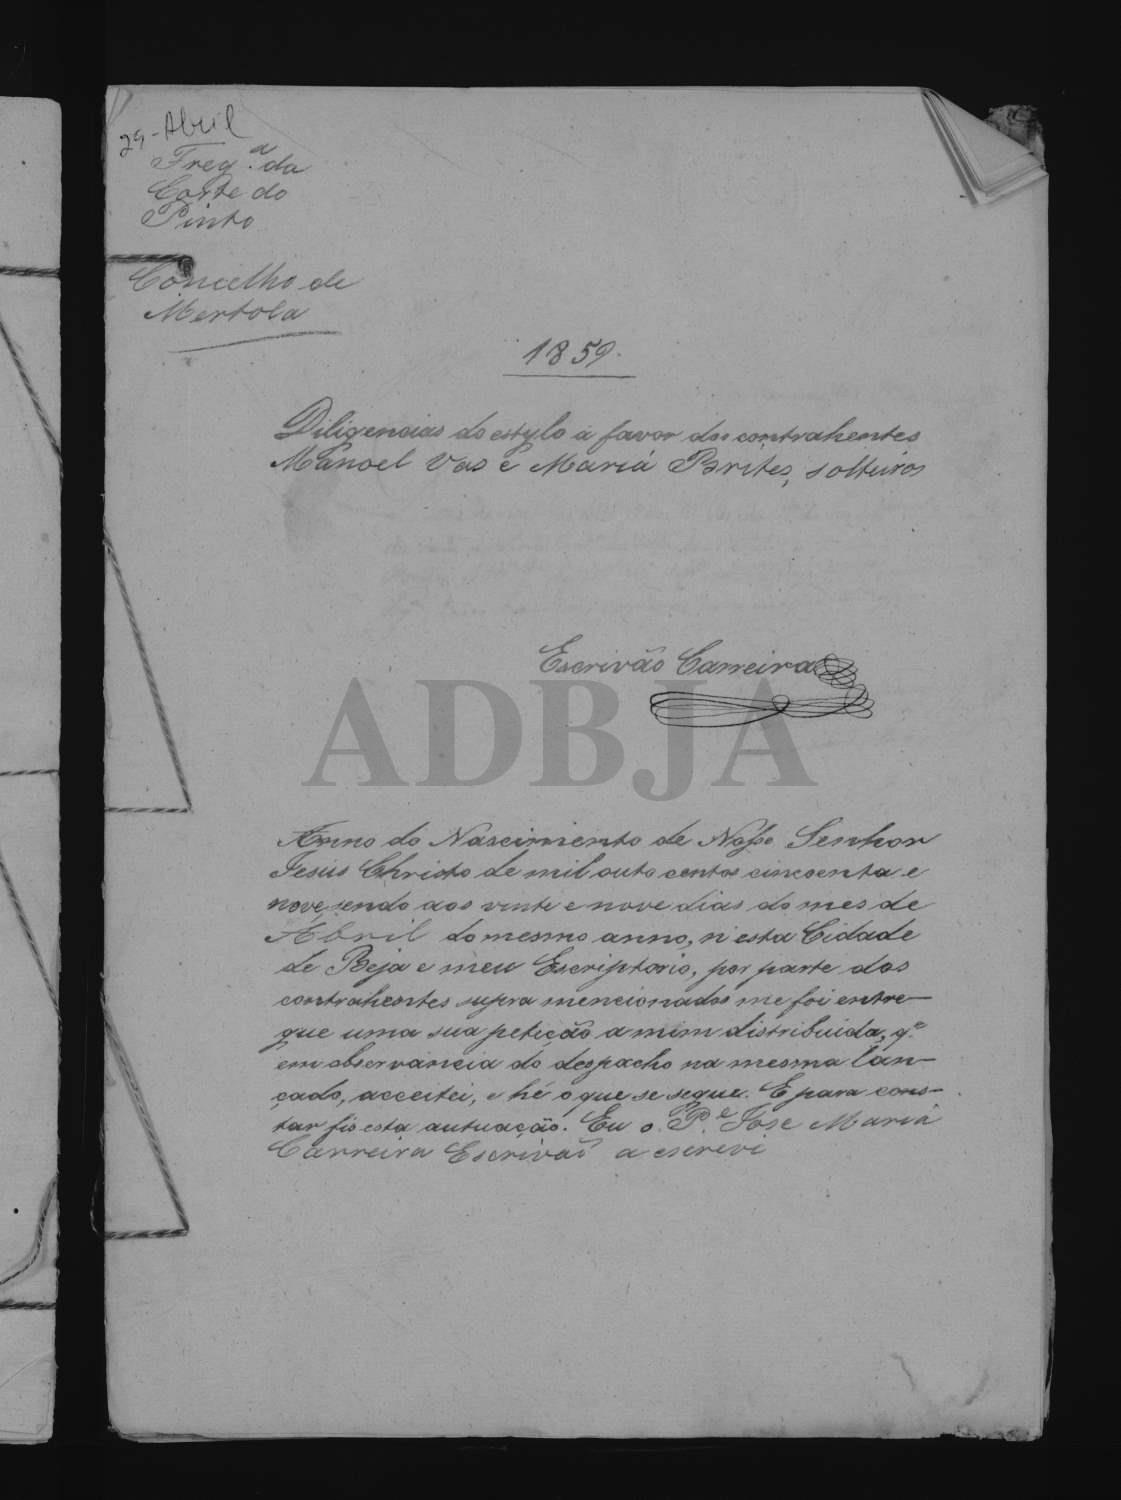 29-Abril
Freg.ª da
Corte do
Pinto
Concelho de
Mertola
1859.
Diligencias do estylo a favor dos contrahentes
Manoel Vas e Maria Brites, solteiros
Escrivão Carreira
ADBJA
Anno do Nascimento de Nosso Senhor
Jesus Christo de mil outo centos cincoenta e
nove, sendo aos vinte e nove dias do mes de
Abril do mesmo anno, n'esta Cidade
de Beja e meu Escriptorio, por parte dos
contrahentes supra mencionados me foi entre-
gue uma sua petição a mim distribuida, q.e
em observancia do despacho na mesma lan-
çado, acceitei, e hé o que se segue. E para cons-
tar fis esta autuação. Eu o P.e Jose Maria
Carreira Escrivão a escrevi